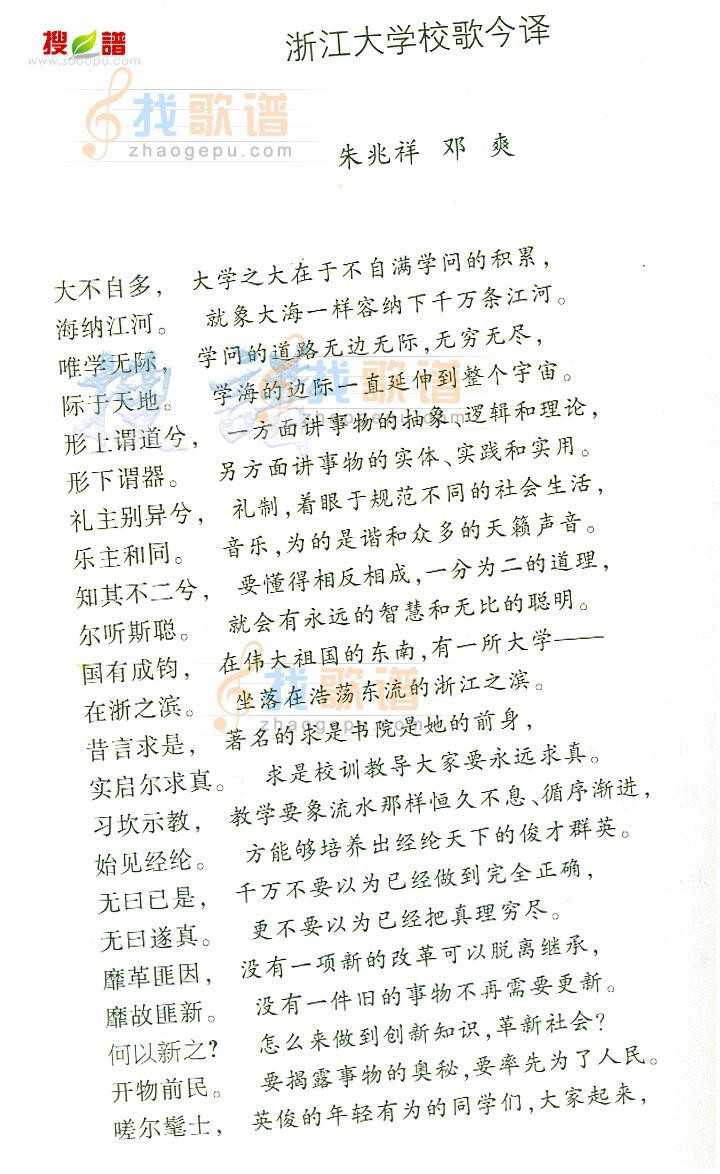 搜谱
www.sooopu.com
浙江大学校歌今译
找歌谱
zhaogepu.com
朱兆祥 邓 爽
大不自多， 大学之大在于不自满学问的积累，
海纳江河。 就象大海一样容纳下千万条江河。
唯学无际， 学问的道路无边无际，无穷无尽，
际于天地。 学海的边际一直延伸到整个宇宙。
搜谱
找歌谱
zhaogepu.com
形上谓道兮， 一方面讲事物的抽象、逻辑和理论，
形下谓器。 另方面讲事物的实体、实践和实用。
礼主别异兮， 礼制，着眼于规范不同的社会生活，
乐主和同。 音乐，为的是谐和众多的天籁声音。
知其不二兮， 要懂得相反相成，一分为二的道理，
尔听斯聪。 就会有永远的智慧和无比的聪明。
国有成钧， 在伟大祖国的东南，有一所大学——
在浙之滨。 坐落在浩荡东流的浙江之滨。
找歌谱
zhaogepu.com
昔言求是， 著名的求是书院是她的前身，
实启尔求真。 求是校训教导大家要永远求真。
习坎示教， 教学要象流水那样恒久不息、循序渐进，
始见经纶。 方能够培养出经纶天下的俊才群英。
无曰已是， 千万不要以为已经做到完全正确，
无曰遂真。 更不要以为已经把真理穷尽。
靡革匪因， 没有一项新的改革可以脱离继承，
靡故匪新。 没有一件旧的事物不再需要更新。
何以新之？ 怎么来做到创新知识，革新社会？
开物前民。 要揭露事物的奥秘，要率先为了人民。
嗟尔髦士， 英俊的年轻有为的同学们，大家起来，